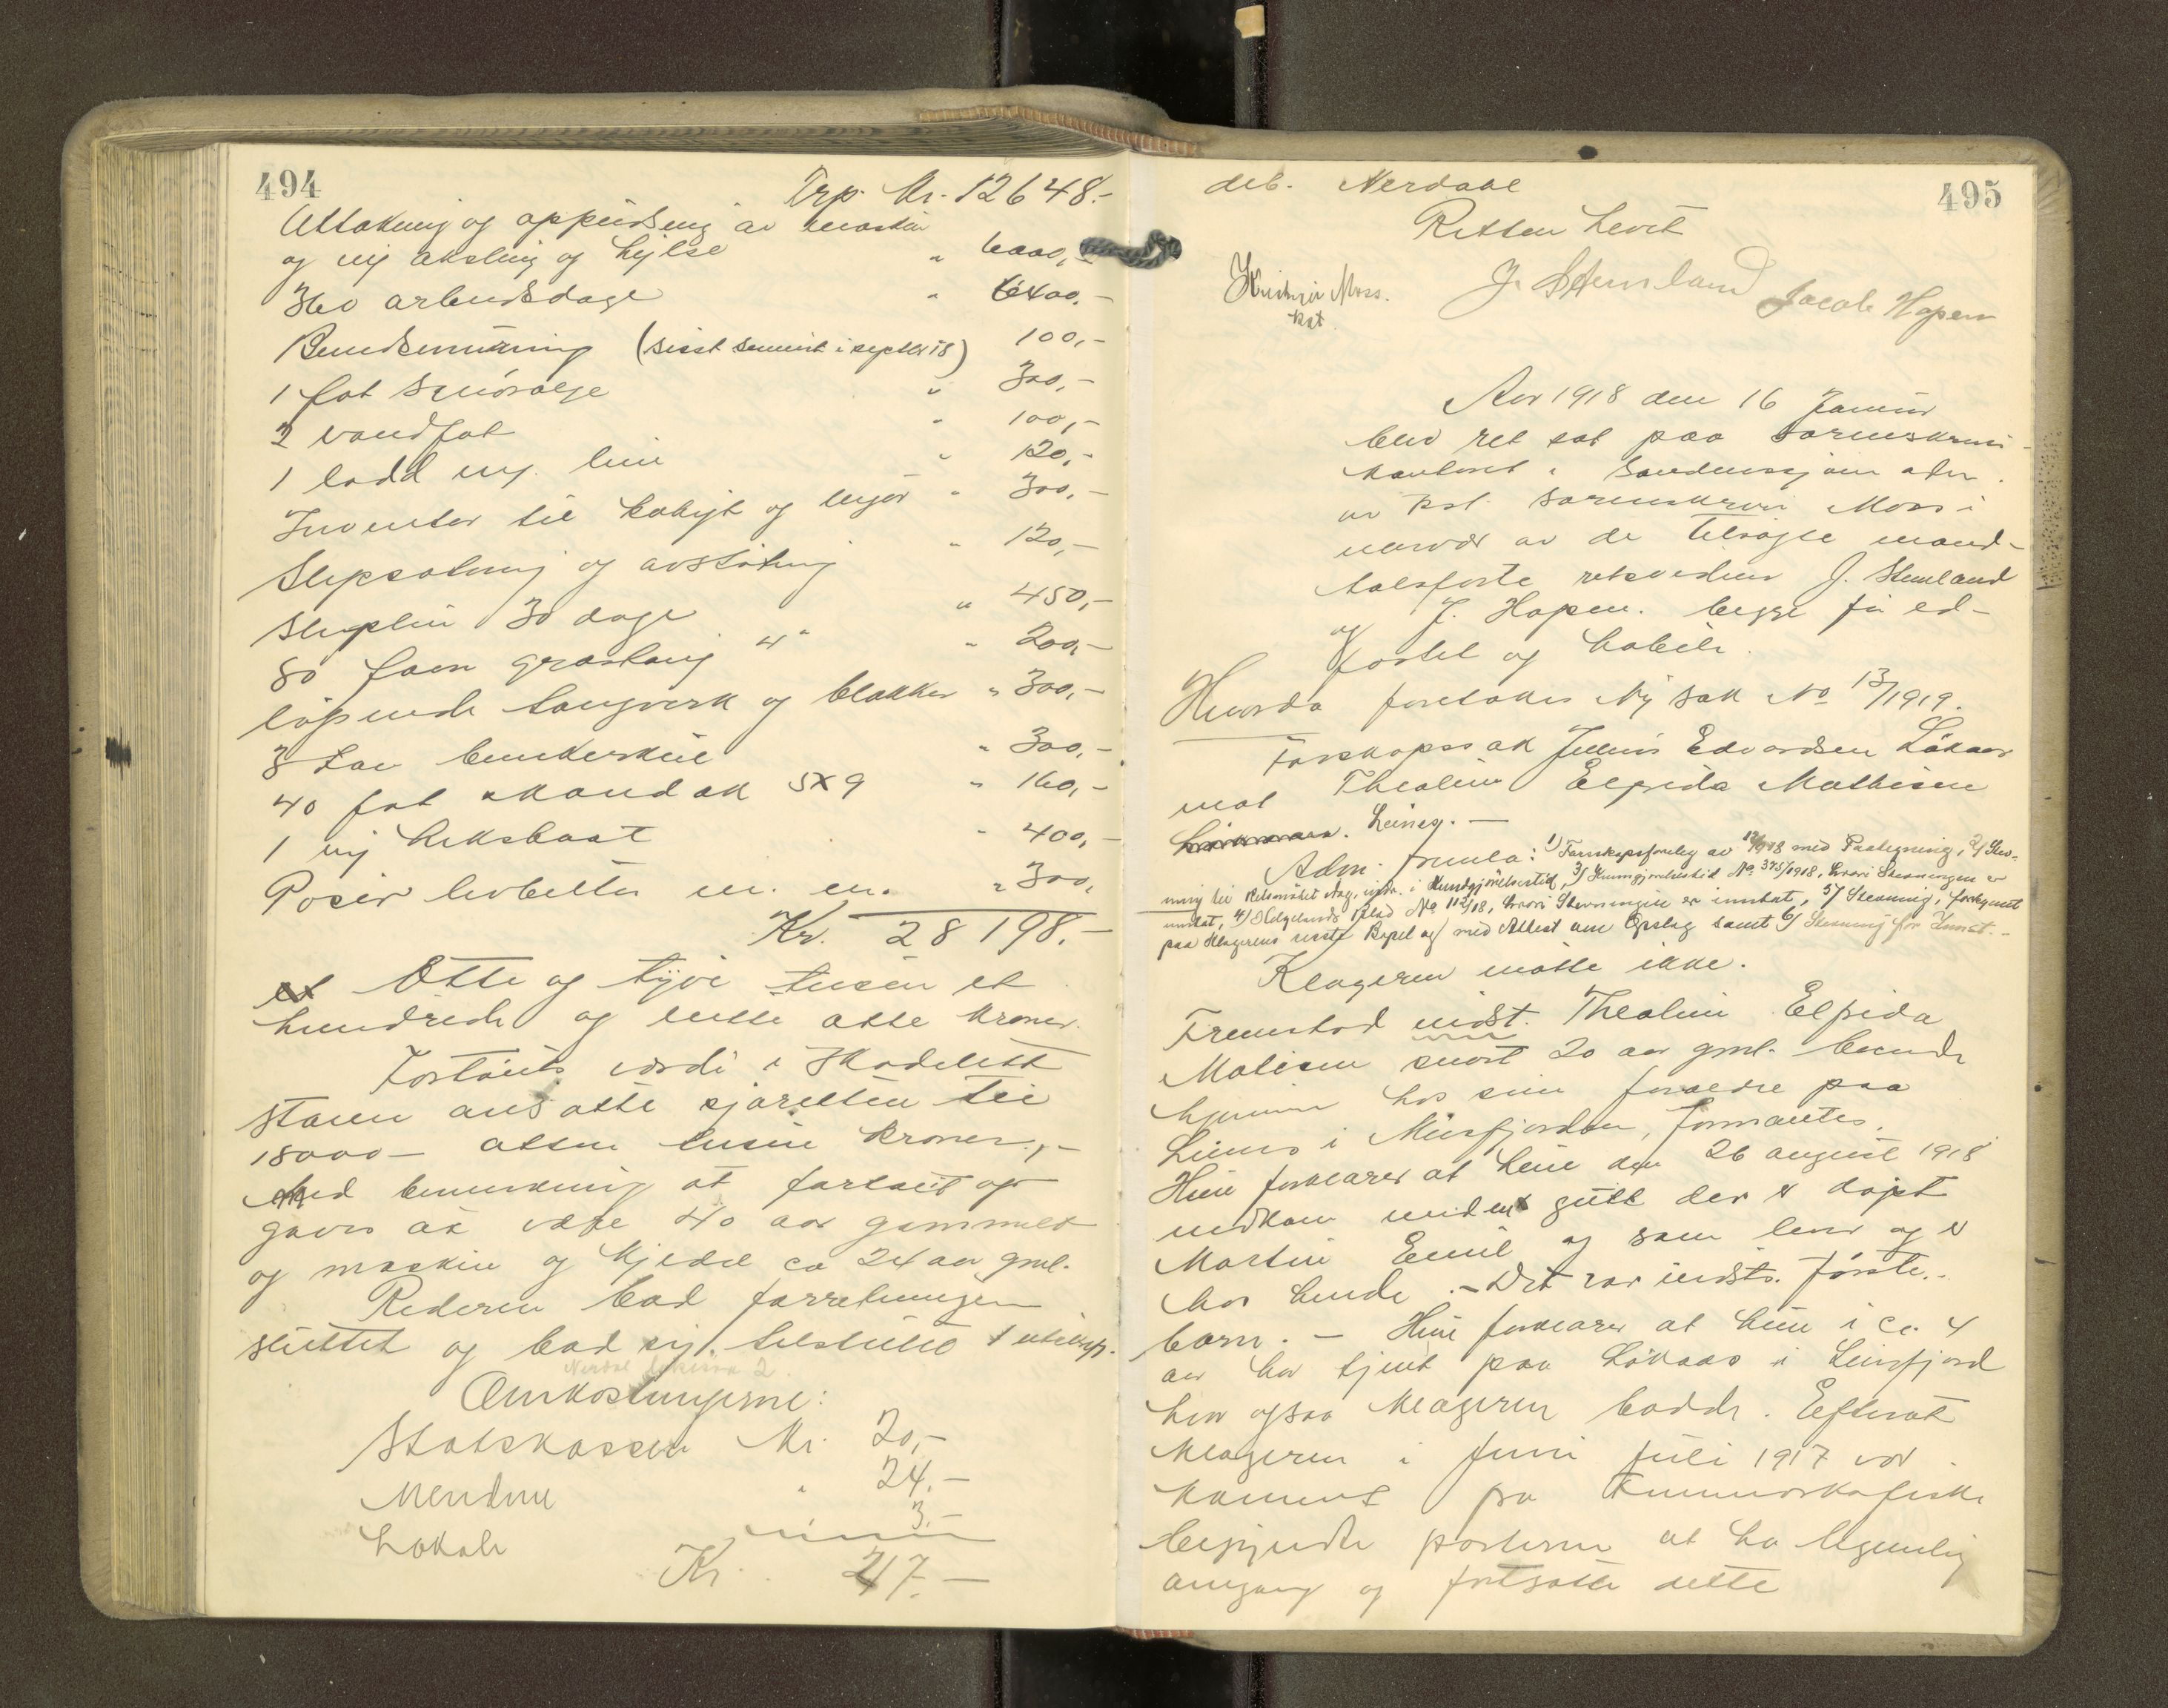 494
Trp. Kr. 12648.-
Uttakning og oppudsning av maskin
og ny aksling og hylse " 6000,-
360 arbeidsdage " 6400.-
Bundsmøring (sisst smurt i septbr 18) 100,-
1 fat smørolje " 300,-
2 vandfat " 100,-
1 lodd ny line " 120,-
Inventar til kahyt og lugar " 300,-
Slipsætning og avsætning " 120,-
Slipleie 30 dage " 450,-
80 favn græstaug 4" " 200,-
løpende taugverk og blokker " 300,-
3 tau bunkerskul " 300,-
40 fot skandæk 5x9 " 160,-
1 ny heksbaat " 400,-
Poser livbelter m. m. " 300,
Kr. 28198.-
Otte og tyve tusen et
hundrede og nitti otte kroner.
Fartøiets værdi i skadelidt
stann ansatte sjøretten til
18000 - atten tusen kroner,-
Med bemerkning at fartøiet op-
gaves at være 40 aar gammelt
og maskin og kjedel ca 24 aar gml.
Rederen bad forretningen
sluttet og bad sig tilstillet 1 utskrift.
Omkostningerne:
Statskassen Kr. 20,-
Mændene " 24.-
Lokale 3.-
Kr. 47.-
deb. Nerdahl
495
Retten hevet
Kristofer Moss.
kst.
J. Stemland Jacob Hopen
Aar 1918 den 16 Januar
blev ret sat paa sorenskriver-
kontoret i Sandnessjøen adm.
av kst. sorenskriver Moss i
nærvær av de tilsagte mand-
talsførte retsvidner J. Stemland
og J. Hopen. begge før ed-
fæstet og habile.
Hvorda foretokes Ny sak No 13/1919.
Farskapssak Julius Edvardsen Løkaas
mot Thealine Elpida Mathisen
Leines. -
Adm. fremla: 1) Farskapsforelæg av 12/9 18 med Paategning, 2/ Stev-
ning til Retsmøtet idag, indr. i Kundgjørelsestid, 3/ Kunngjørelsestid No 375/1918, hvori Stevningen er
inntat, 4/ Helgelands Blad No 112/18, hvori Stevningen er inntat, 5/ Stevning, forkynt
paa Klagerens sisste Bopel og med Attest om Opslag samt 6/ Stevning for Innst. -
Klageren møtte ikke.
Fremstod indst. Thealine Elpida
Matisen snart 20 aar gml. boende
hjemme hos sine forældre paa
Leines i Meisfjorden, formantes.
Hun forklarer at hun den 26 august 1918
nedkom med en gutt der er døpt
Martin Emil og som lever og er
hos hende. - Det var indsts. første
barn. - Hun forklarer at hun i ca. 4
aar har tjent paa Løkaas i Leirfjord
hvor ogsaa klageren bodde. Efterat
klageren i Juni Juli 1917 var
kommet fra Finmarksfiske
begyndte parterne at ha legemlig
omgang og fortsatte dette